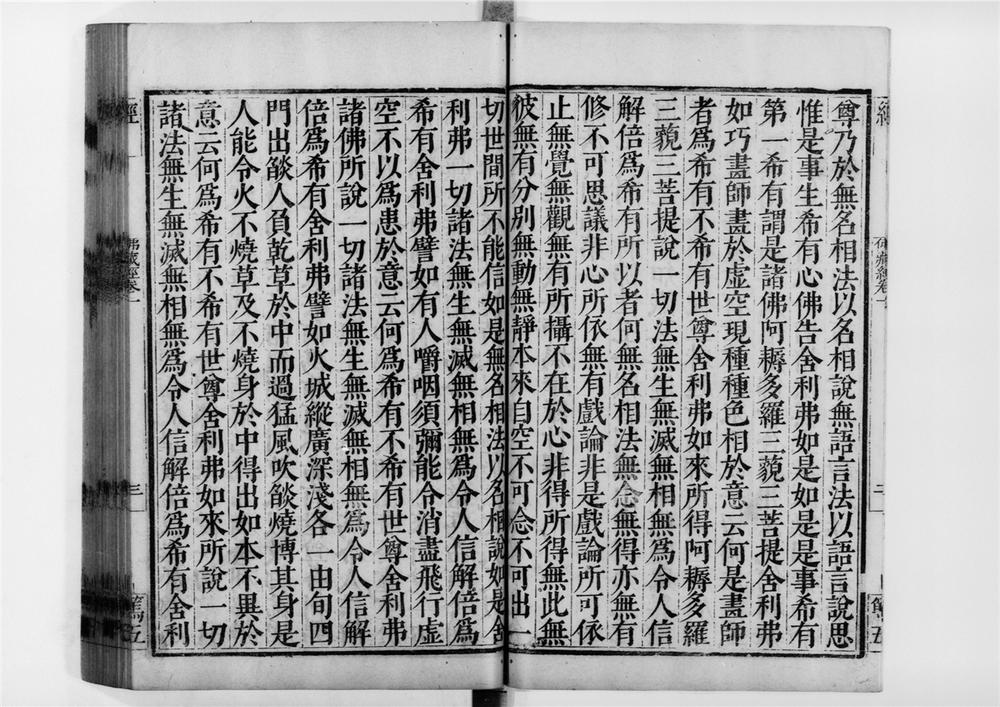 尊乃於無名相法以名相說無語言法以語言說思
惟是事生希有心佛告舍利弗如是如是是事希有
第一希有謂是諸佛阿耨多羅三藐三菩提舍利弗
如巧畫師畫於虛空現種種色相於意云何是畫師
者爲希有不希有世尊舍利弗如來所得阿耨多羅
三藐三菩提說一切法無生無滅無相無爲令人信
解倍爲希有所以者何無名相法無念無得亦無有
修不可思議非心所依無有戲論非是戲論所可依
止無覺無觀無有所攝不在於心非得所得無此無
彼無有分別無動無靜本來自空不可念不可出一
切世間所不能信如是無名相法以名相說如是舍
利弗一切諸法無生無滅無相無爲令人信解倍爲
希有舍利弗譬如有人嚼咽須彌能令消盡飛行虛
空不以爲患於意云何爲希有不希有世尊舍利弗
諸佛所說一切諸法無生無滅無相無爲令人信解
倍爲希有舍利弗譬如火城縱廣深淺各一由旬四
門出燄人負乾草於中而過猛風吹燄燒博其身是
人能令火不燒草及不燒身於中得出如本不異於
意云何爲希有不希有世尊舍利弗如來所說一切
諸法無生無滅無相無爲令人信解倍爲希有舍利
經
佛藏經卷一
三
篤五